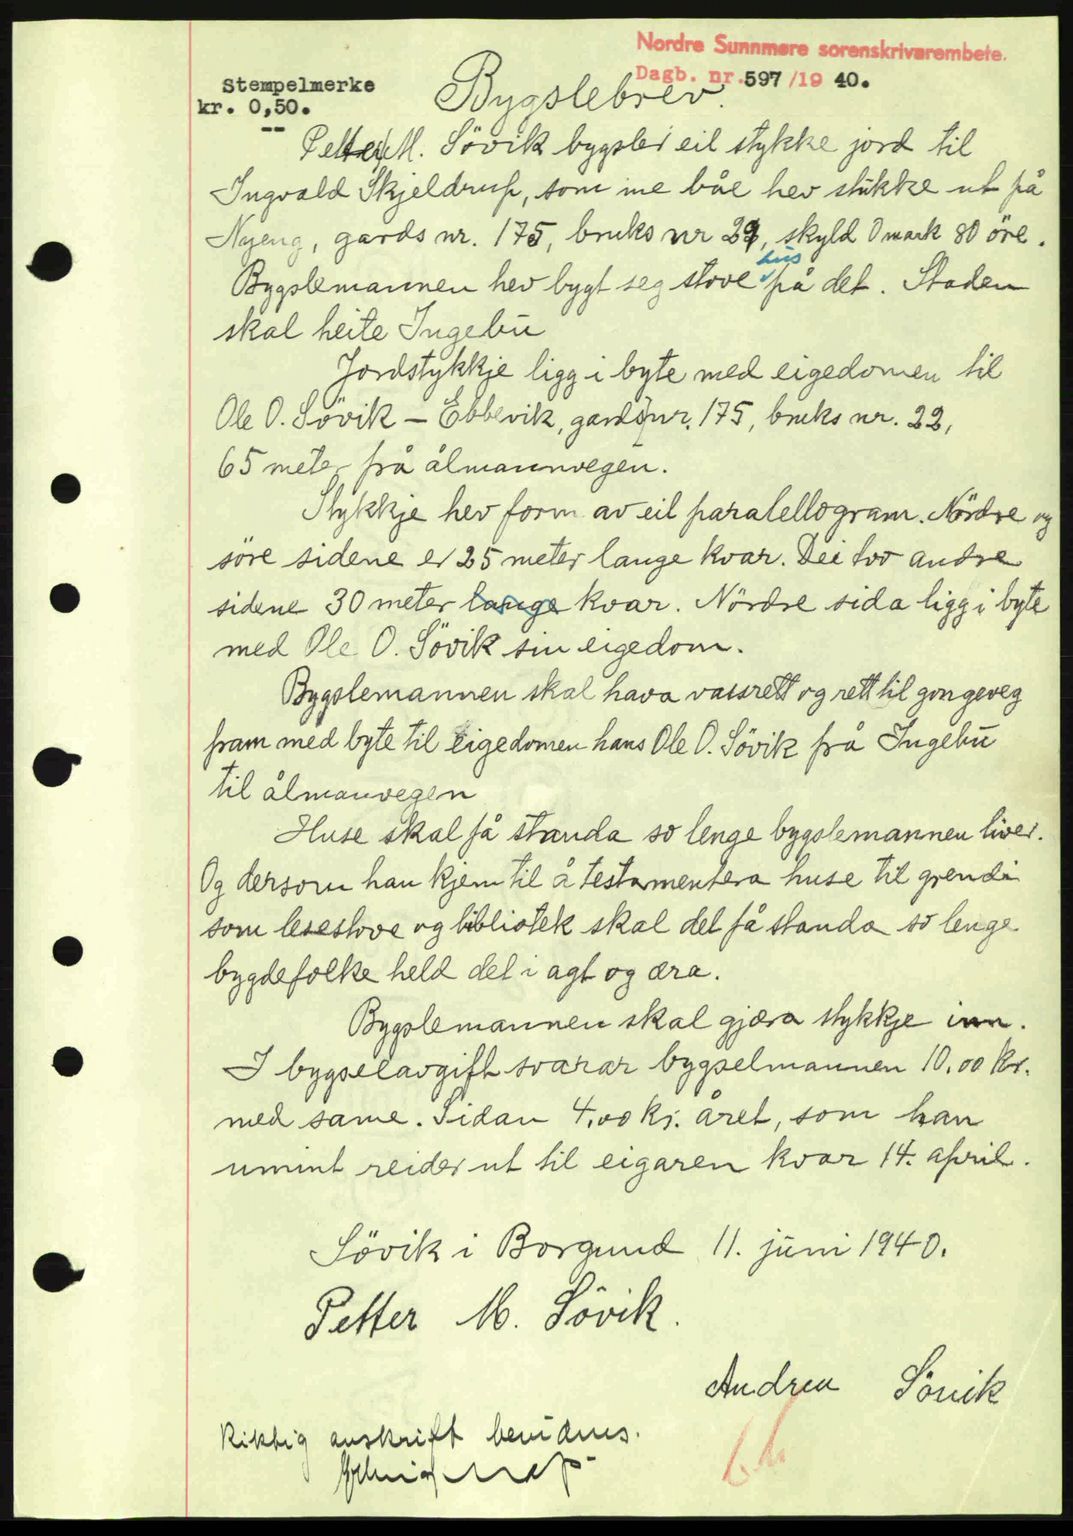 Nordre Sunnmøre sorenskriverembete.
Dagb. nr. 597/19 40.
Stempelmerke
kr. 0,50.
Bygslebrev.
Petter M. Sövik bygsler eit stykke jord til
Ingvald Skjeldrup, som me båe hev stukke ut på
Nyeng, gards nr. 175, bruks nr 29, skyld 0 mark 80 öre.
Bygslemannen hev bygt seg stove hus på det. Staden
skal heite Ingebu
Jordstykkje ligg i byte med eigedomen til
Ole O. Sövik – Ebbevik, gards nr. 175, bruks nr. 22,
65 meter frå ålmannvegen.
Stykkje hev form av eit paralellogram. Nördre og
söre sidene er 25 meter lange kvar. Dei tvo andre
sidene 30 meter lange kvar. Nördre sida ligg i byte
med Ole O. Sövik sin eigedom.
Bygslemannen skal hava vassrett og rett til gongeveg
fram med byte til eigedomen hans Ole O. Sövik frå Ingebu
til ålmanvegen
Huse skal få standa so lenge bygslemannen liver.
Og dersom han kjem til å testamentera huse til grendi
som lesestove og bibliotek skal det få standa so lenge
bygdefolke held det i agt og æra.
Bygslemannen skal gjæra stykkje inn.
I bygselavgift svarar bygselmannen 10.00 kr.
med same. Sidan 4.00 kr. året, som han
umint reider ut til eigaren kvar 14. april.
Sövik i Borgund 11. juni 1940.
Petter M. Sövik.
Andrea Sövik
Riktig avskrift bevidnes.